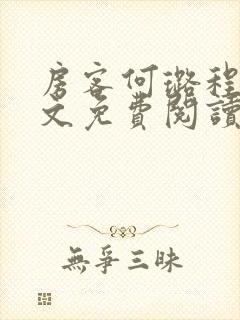 房客何璐程
文免費閱讀
無爭三昧